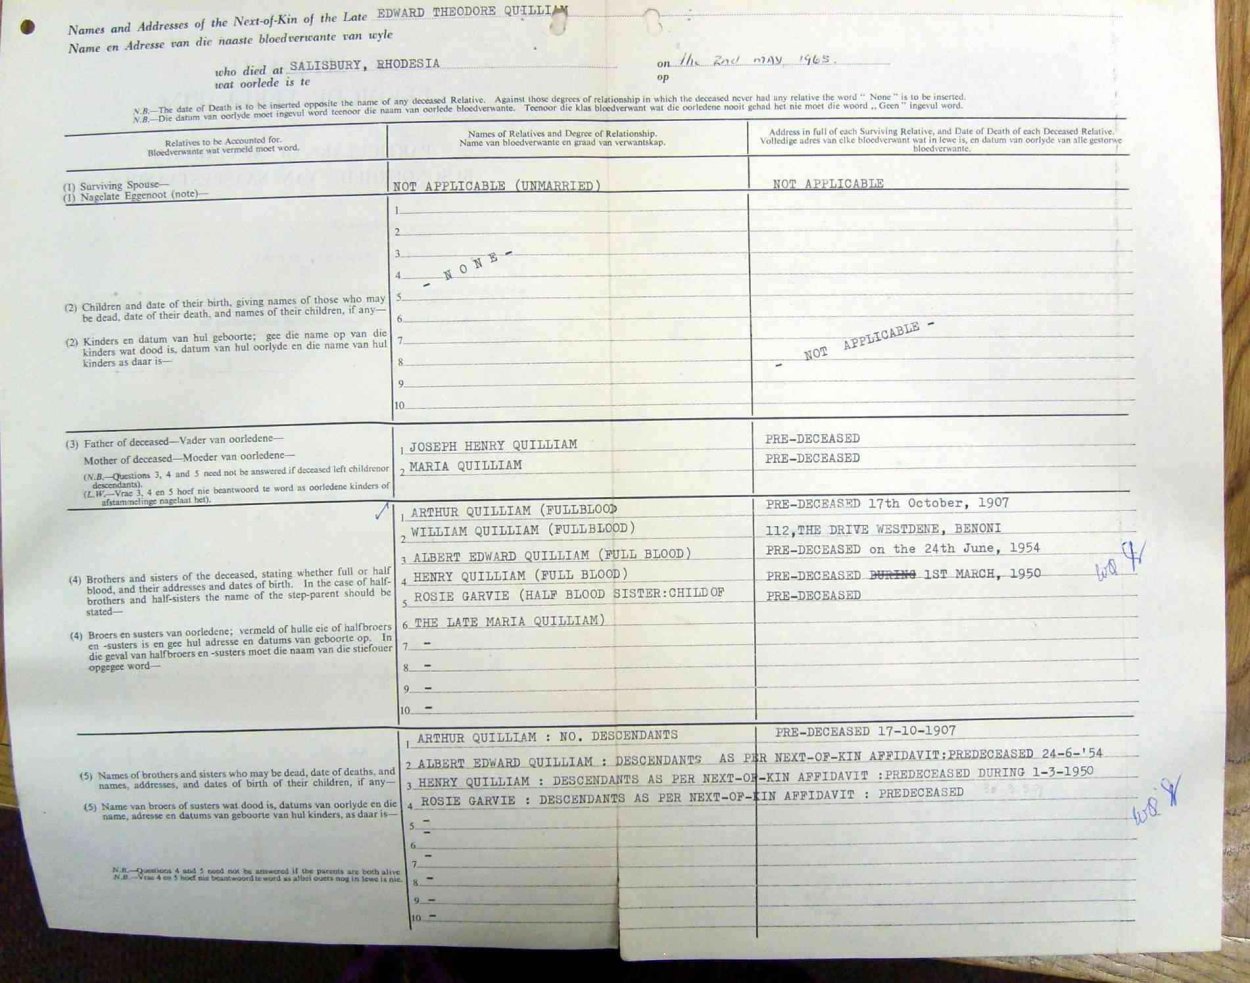 Names and Addresses of the Next-of-Kin of the Late EDWARD THEODORE QUILLIAM
Name en Adresse van die naaste bloedverwante van wyle
who died at SALISBURY, RHODESIA on the 2nd MAY, 1965.
wat oorlede is te op
N.B.—The date of Death is to be inserted opposite the name of any deceased Relative. Against those degrees of relationship in which the deceased never had any relative the word " None " is to be inserted.
N.B.—Die datum van oorlyde moet ingevul word teenoor die naam van oorlede bloedverwante. Teenoor die klas bloedverwant wat die oorledene nooit gehad het nie moet die woord ,, Geen " ingevul word.
Relatives to be Accounted for.
Bloedverwante wat vermeld moet word.
Names of Relatives and Degree of Relationship.
Name van bloedverwante en graad van verwantskap.
Address in full of each Surviving Relative, and Date of Death of each Deceased Relative.
Volledige adres van elke bloedverwant wat in lewe is, en datum van oorlyde van alle gestorwe
bloedverwante.
(1) Surviving Spouse—
(1) Nagelate Eggenoot (note)—
NOT APPLICABLE (UNMARRIED) NOT APPLICABLE
(2) Children and date of their birth, giving names of those who may
be dead, date of their death, and names of their children, if any—
(2) Kinders en datum van hul geboorte; gee die name op van die
kinders wat dood is, datum van hul oorlyde en die name van hul
kinders as daar is—
1
2
3
4
5
6
7
8
9
10
- NONE -
- NOT APPLICABLE -
(3) Father of deceased—Vader van oorledene—
Mother of deceased—Moeder van oorledene—
(N.B.—Questions 3, 4 and 5 need not be answered if deceased left childrenor
descendants).
(L.W.—Vrae 3, 4 en 5 hoef nie beantwoord te word as oorledene kinders of
afstammelinge nagelaat het).
1 JOSEPH HENRY QUILLIAM PRE-DECEASED
2 MARIA QUILLIAM PRE-DECEASED
(4) Brothers and sisters of the deceased, stating whether full or half
blood, and their addresses and dates of birth. In the case of half-
brothers and half-sisters the name of the step-parent should be
stated—
(4) Broers en susters van oorledene; vermeld of hulle eie of halfbroers
en -susters is en gee hul adresse en datums van geboorte op. In
die geval van halfbroers en -susters moet die naam van die stiefouer
opgegee word—
1 ARTHUR QUILLIAM (FULLBLOOD) PRE-DECEASED 17th October, 1907
2 WILLIAM QUILLIAM (FULLBLOOD) 112,THE DRIVE WESTDENE, BENONI
3 ALBERT EDWARD QUILLIAM (FULL BLOOD) PRE-DECEASED on the 24th June, 1954
4 HENRY QUILLIAM (FULL BLOOD) PRE-DECEASED DURING 1ST MARCH, 1950
5 ROSIE GARVIE (HALF BLOOD SISTER:CHILD OF PRE-DECEASED
6 THE LATE MARIA QUILLIAM)
7 -
8 -
9 -
10 -
(5) Names of brothers and sisters who may be dead, date of deaths, and
names, addresses, and dates of birth of their children, if any—
(5) Name van broers of susters wat dood is, datums van oorlyde en die
name, adresse en datums van geboorte van hul kinders, as daar is—
N.B.—Questions 4 and 5 need not be answered if the parents are both alive.
N.B.—Vrae 4 en 5 hoef nie beantwoord te word as albei ouers nog in lewe is nie.
1 ARTHUR QUILLIAM : NO. DESCENDANTS PRE-DECEASED 17-10-1907
2 ALBERT EDWARD QUILLIAM : DESCENDANTS AS PER NEXT-OF-KIN AFFIDAVIT:PREDECEASED 24-6-'54
3 HENRY QUILLIAM : DESCENDANTS AS PER NEXT-OF-KIN AFFIDAVIT :PREDECEASED DURING 1-3-1950
4 ROSIE GARVIE : DESCENDANTS AS PER NEXT-OF-KIN AFFIDAVIT : PREDECEASED
5 -
6 -
7 -
8 -
9 -
10 -